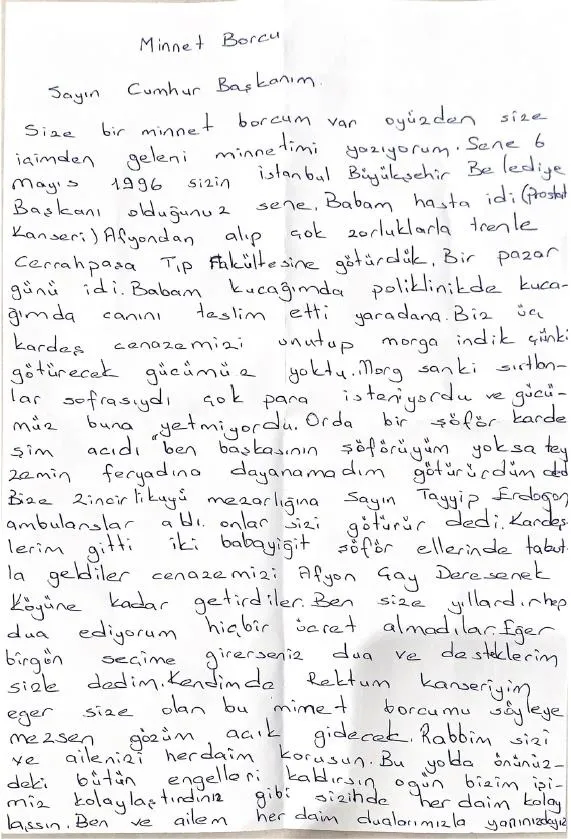 Minnet Borcu
Sayın Cumhur Başkanım.
Size bir minnet borcum var oyüzden size
içimden geleni minnetimi yazıyorum. Sene 6
mayıs 1996 sizin istanbul Büyükşehir Belediye
Başkanı olduğunuz sene. Babam hasta idi (Prostat
Kanseri) Afyondan alıp çok zorluklarla trenle
Cerrahpaşa Tıp Fakültesine götürdük. Bir pazar
günü idi. Babam kucağımda poliklinikde kuca-
ğımda canını teslim etti yaradana. Biz üç
kardeş cenazemizi unutup morga indik çünki
götürecek gücümüz yoktu. Morg sanki sırtlan-
lar sofrasıydı çok para isteniyordu ve gücü-
müz buna yetmiyordu. Orda bir şöför karde
şim acıdı ben başkasının şöförüyüm yoksa tey
zemin feryadına dayanamadım götürürdüm dedi
Bize Zincirlikuyu mezarlığına Sayın Tayyip Erdoğan
ambulanslar aldı. onlar sizi götürür dedi. Kardeş
lerim gitti iki babayiğit şöför ellerinde tabut
la geldiler cenazemizi Afyon Çay Deresenek
Köyüne kadar getirdiler. Ben size yıllardırhep
dua ediyorum hiçbir ücret almadılar. Eğer
birgün seçime girerseniz dua ve desteklerim
sizle dedim. Kendimde Rektum kanseriyim
eger size olan bu minet borcumu söyleye
mezsen gözüm açık gidecek. Rabbim sizi
ve ailenizi herdaim korusun. Bu yolda önünüz-
deki bütün engelleri kaldırsın ogün bizim işi-
miz kolaylaştırdınız gibi sizinde her daim kolay
laşsın. Ben ve ailem her daim dualarımızla yanınızdayız